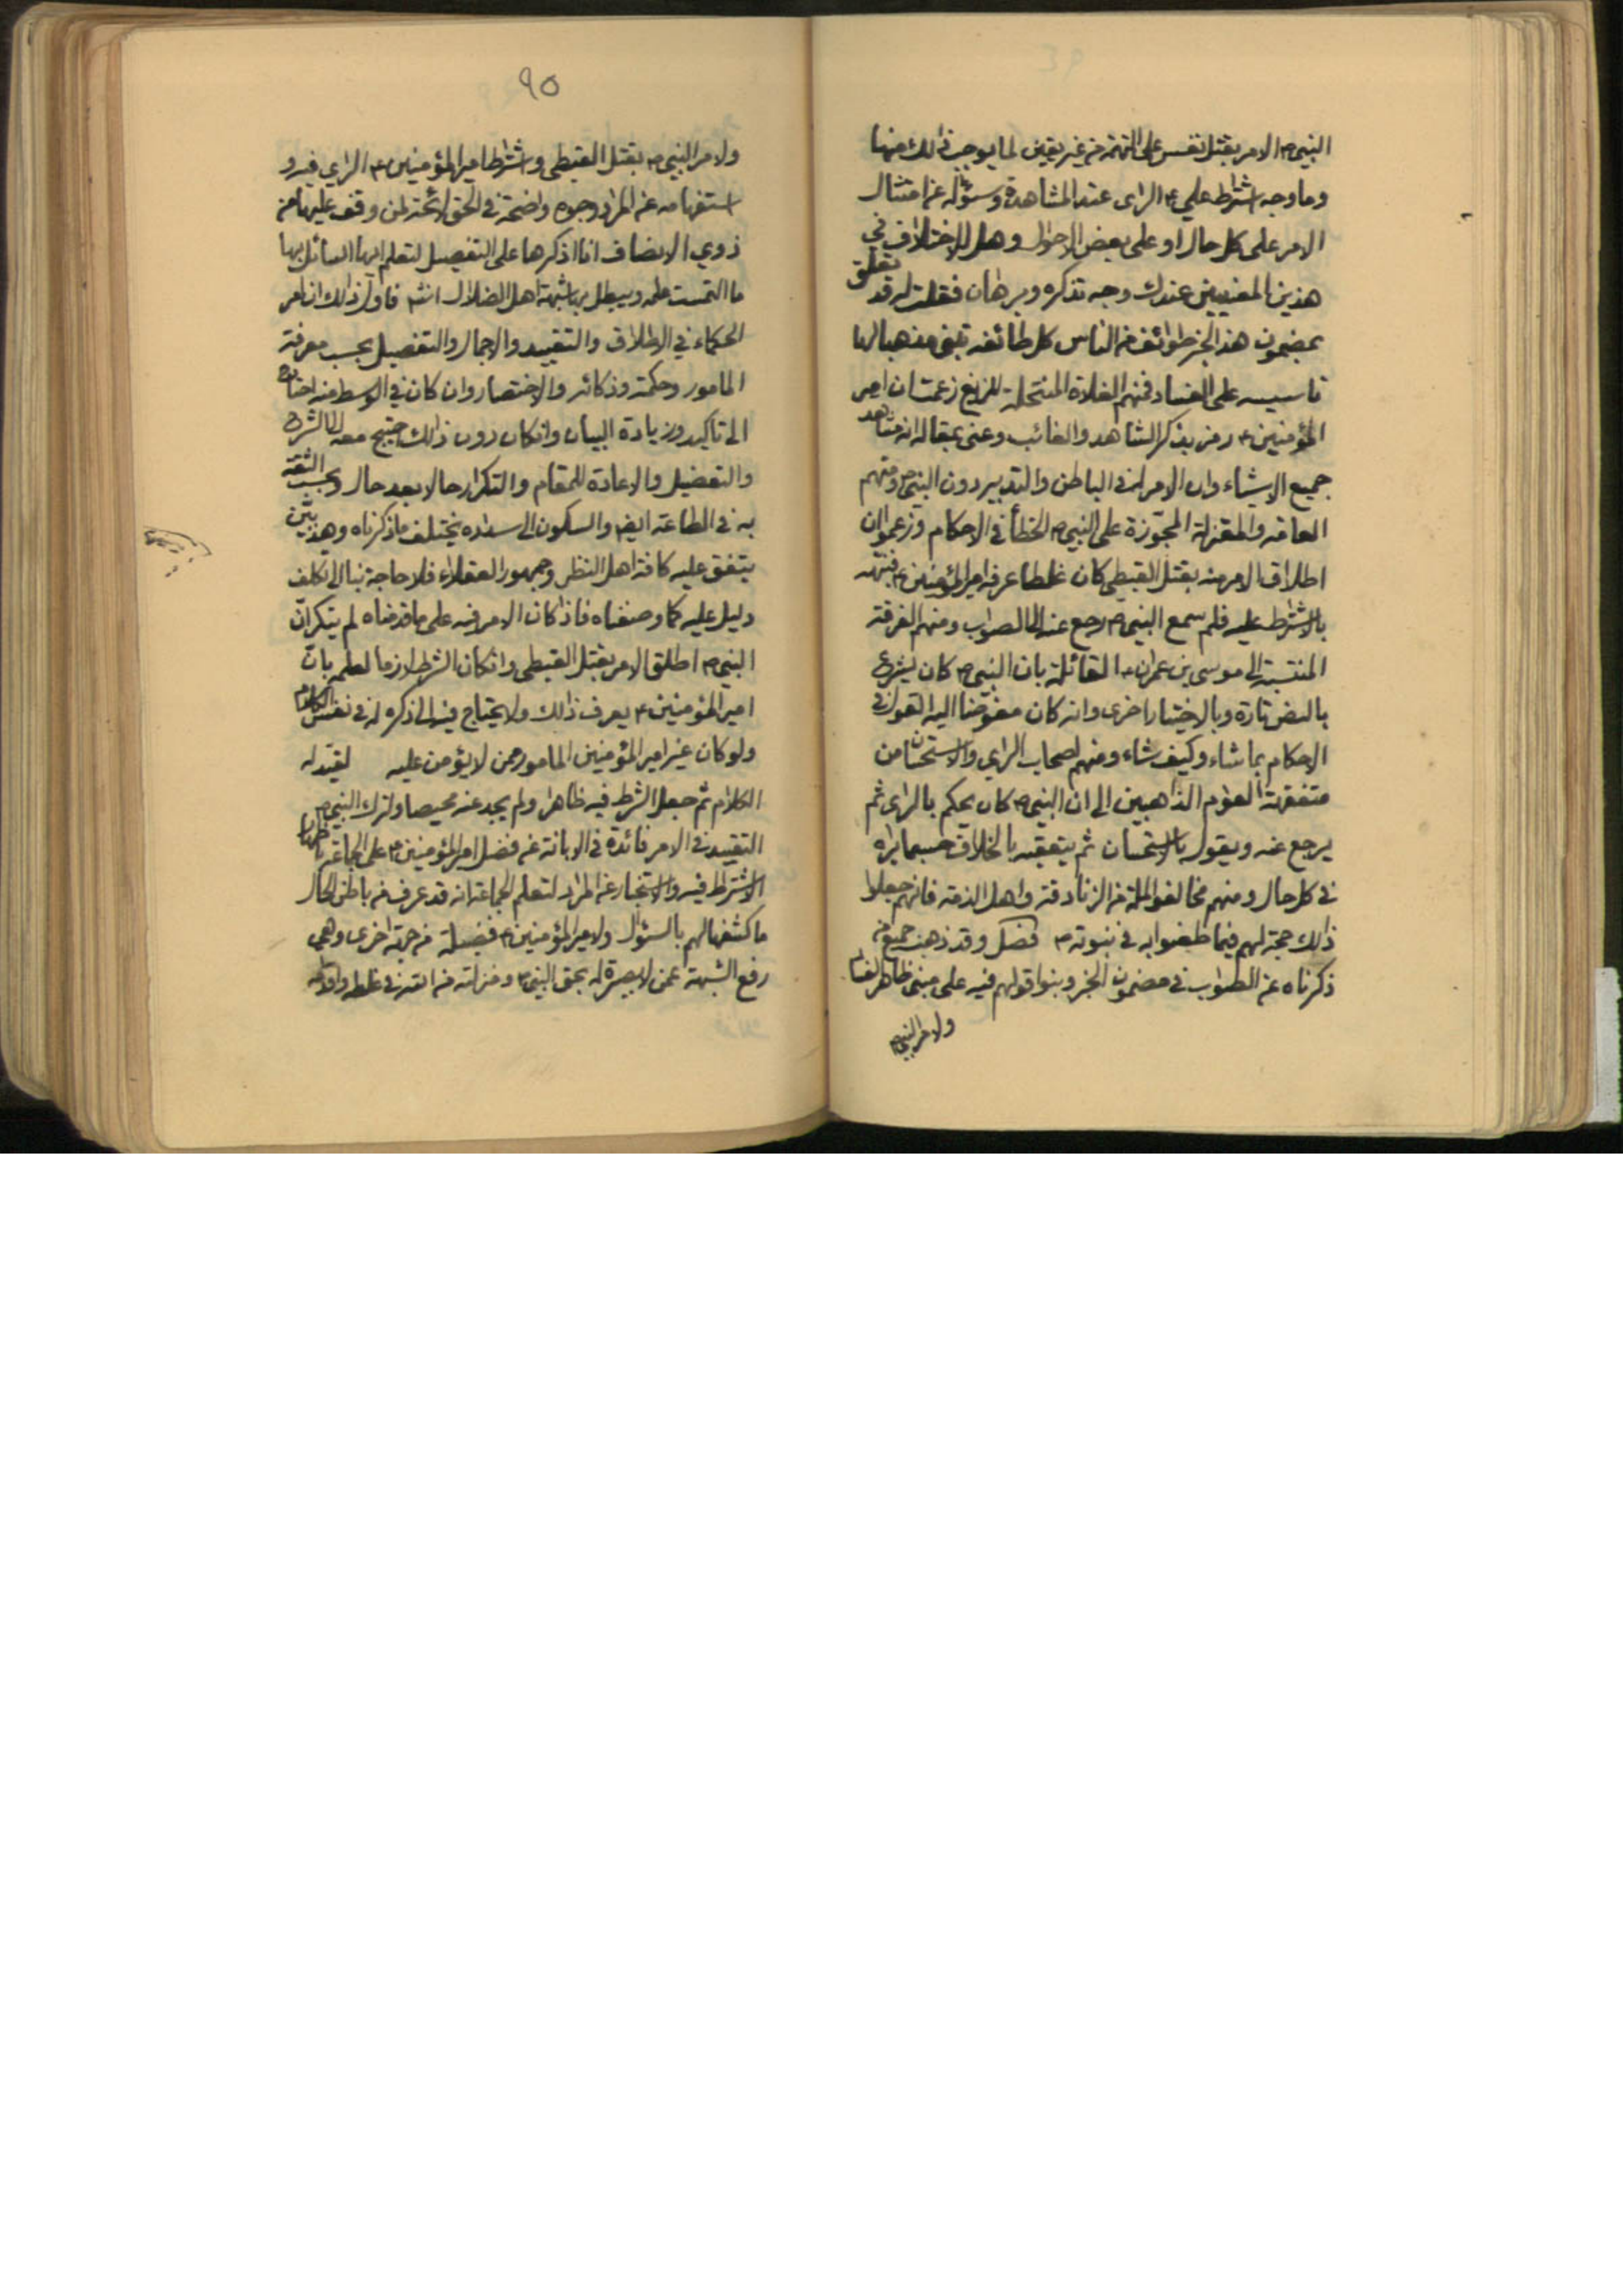 النبي ص الامر بقتل نفس على التهمة من غير يقين لما يوجب ذلك منها
وما وجه اشتراط علي ع الراى عند المشاهدة وسؤاله عن امتثال
الامر على كل حال او على بعض الاحوال وهل للاختلاف في
هذين المعنيين عندك وجه تذكره وبرهان فقلت له قد تعلق
بمضمون هذا الخبر طوائف من الناس كل طائفة تبنى مذهبا لها
تاسيسه على الفساد فمنهم الغلاة المنتحلة للزيغ زعمت ان امير
المؤمنين ع رمز بذكر الشاهد والغائب وعنى بمقاله انه شاهد
جميع الاشياء وان الامر له في الباطن والتدبير دون النبي ص ومنهم
العامة والمعتزلة المجوزة على النبي ص الخطأ في الاحكام وزعموا ان
اطلاق الامر منه بقتل القبطي كان غلطا عرفه امير المؤمنين ع فنبهه
بالاشتراط عليه فلم سمع النبي ص رجع عنه الى الصواب ومنهم الفرقة
المنتسبة الى موسى بن عمران القائلة بان النبي ص كان يشرع
بالنص تارة وبالاختيار اخرى وانه كان مفوضا اليه القول في
الاحكام بما شاء وكيف شاء ومنهم اصحاب الراي والاستحسان من
متفقهة العوام الذاهبين الى ان النبي ص كان يحكم بالراى ثم
يرجع عنه ويقول بالاستحسان ثم يتعقبه بالخلاف حسبما يراه
في كل حال ومنهم مخالفوا الملة من الزنادقة واهل الذمة فانهم جعلوا
ذالك حجة لهم فيما طعنوا به في نبوته ص فصل وقد ذهب جميع من
ذكرناه عن الصواب في مضمون الخبر وبنوا قولهم فيه على مبنى ظاهر الفساد
ولامر النبي ص
٩٥
ولامر النبي ص بقتل القبطي واشتراط امير المؤمنين ع الراي فيه و
استفهامه عن المراد وجوه واضحة في الحق لائحة لمن وقف عليها من
ذوي الانصاف انا اذكرها على التفصيل لتعلم ايها السائل بها
ما التمست علمه ويبطل بها شبهة اهل الضلال انشه فاول ذالك ان امر
الحكماء في الاطلاق والتقييد والاجمال والتفصيل بحسب معرفة
المامور وحكمته وذكائه والاختصار وان كان في الوسط منه احتاج
الى تاكيد وزيادة البيان وان كان دون ذالك احتيج معه الى الشرح
والتفصيل والاعادة للمقام والتكرار حالا بعد حال وبحسب الثقة
به في الطاعة ايضا والسكون الى سداده يختلف ما ذكرناه وهذا بين
يتفق عليه كافة اهل النظر وجمهور العقلاء فلا حاجة بنا الى تكلف
دليل عليه كما وصفناه فاذا كان الامر فيه على ما قدمناه لم ينكر ان
النبي ص اطلق الامر بقتل القبطي وان كان الشرط لازما لعلمه بان
امير المؤمنين ع يعرف ذالك ولا يحتاج فيه الى ذكره له في نفس الكلام
ولو كان غير امير المؤمنين المامور ممن لا يؤمن عليه لقيد له
الكلام ثم جعل الشرط فيه ظاهرا ولم يجد عنه محيصا ولترك النبي ص
التقييد في الامر فائدة في الابانة عن فضل امير المؤمنين ع على الجماعة باظهار
الاشتراط فيه والاستخبار عن المراد لتعلم الجماعة انه قد عرف من باطن الحال
ما كشفها لهم بالسؤال ولامير المؤمنين ع فضيلة من جهة اخرى وهي
رفع الشبهة عمن لا بصيرة له بحق النبي ص ومنزلته من الله في غلطه